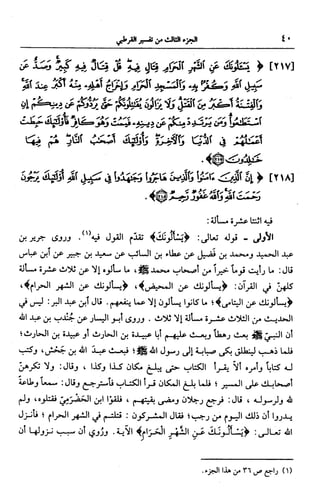 ٤٠
الجزء الثالث من تفسير القرطبي
[٢١٧] ﴿ يَسْـَٔلُونَكَ عَنِ الشَّهْرِ الْحَرَامِ قِتَالٍ فِيهِ قُلْ قِتَالٌ فِيهِ كَبِيرٌ وَصَدٌّ عَن
سَبِيلِ اللَّهِ وَكُفْرٌ بِهِ وَالْمَسْجِدِ الْحَرَامِ وَإِخْرَاجُ أَهْلِهِ مِنْهُ أَكْبَرُ عِندَ اللَّهِ
وَالْفِتْنَةُ أَكْبَرُ مِنَ الْقَتْلِ وَلَا يَزَالُونَ يُقَاتِلُونَكُمْ حَتَّى يَرُدُّوكُمْ عَن دِينِكُمْ إِنِ
اسْتَطَاعُوا وَمَن يَرْتَدِدْ مِنكُمْ عَن دِينِهِ فَيَمُتْ وَهُوَ كَافِرٌ فَأُولَٰئِكَ حَبِطَتْ
أَعْمَالُهُمْ فِي الدُّنْيَا وَالْآخِرَةِ وَأُولَٰئِكَ أَصْحَابُ النَّارِ هُمْ فِيهَا
خَالِدُونَ ﴿٢١٧﴾
[٢١٨] ﴿ إِنَّ الَّذِينَ ءَامَنُوا وَالَّذِينَ هَاجَرُوا وَجَاهَدُوا فِي سَبِيلِ اللَّهِ أُولَٰئِكَ يَرْجُونَ
رَحْمَتَ اللَّهِ وَاللَّهُ غَفُورٌ رَحِيمٌ ﴿٢١٨﴾
فيه اثنتا عشرة مسألة:
الأولى - قوله تعالى: ﴿يَسْأَلُونَكَ﴾ تقدّم القول فيه(١). وروى جرير بن
عبد الحميد ومحمد بن فضيل عن عطاء بن السائب عن سعيد بن جبير عن ابن عباس
قال: ما رأيت قوماً خيراً من أصحاب محمد ﷺ، ما سألوه إلا عن ثلاث عشرة مسألة
كلهنّ في القرآن: ﴿يسألونك عن المحيض﴾، ﴿يسألونك عن الشهر الحرام﴾،
﴿يسألونك عن اليتامى﴾؛ ما كانوا يسألون إلا عما ينفعهم. قال أبن عبد البر: ليس في
الحديث من الثلاث عشرة مسألة إلا ثلاث. وروى أبو اليسار عن جُندب بن عبد الله
أن النبيّ ﷺ بعث رهطاً وبعث عليهم أبا عبيدة بن الحارث أو عبيدة بن الحارث؛
فلما ذهب لينطلق بكى صبابة إلى رسول الله ﷺ؛ فبعث عبدَ الله بن جَحْش، وكتب
له كتاباً وأمره ألا يقرأ الكتاب حتى يبلغ مكان كذا وكذا، وقال: ولا تكرهنّ
أصحابك على المسير؛ فلما بلغ المكان قرأ الكتاب فأسترجع وقال: سمعاً وطاعةً
لله ولرسوله، قال: فرجع رجلان ومضى بقيتهم، فلقوا ابن الحَضْرَمِيّ فقتلوه، ولم
يدروا أن ذلك اليوم من رجب؛ فقال المشركون: قتلتم في الشهر الحرام؛ فأنزل
الله تعالى: ﴿يَسْأَلُونَكَ عَنِ الشَّهْرِ الْحَرَامِ﴾ الآية. ورُوي أن سبب نزولها أن
(١) راجع ص ٣٦ من هذا الجزء.